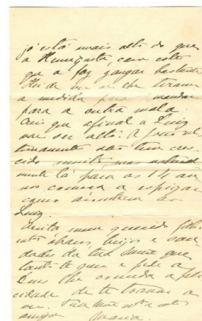 já está mais alto do que
a Henriqueta com isto
que a faz zangar bastante
Hei de ver se che tiram
a medida para mandar
para a outra mala
Creio que afinal o Luiz
vae ser alto: A José ul
timamente não tem cres
cido muito mas natural
mente lá para os 14 an
nos começa a espigar
como aconteceu ao
Luiz.
Adeus meu querido filho
abraços, beijos e sau
dades da tua Mãe que
tanto te quer e pede a
Deus lhe conceda a feli
cidade de te tornar a
ver. Tua Mãe e
amiga Maria